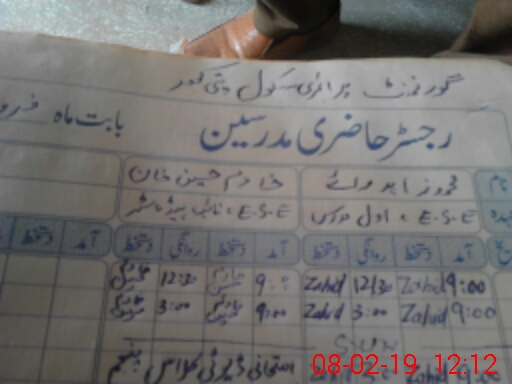 گورنمنٹ پرائمری سکول
رجسٹر حاضری مدرسین بابت ماہ
نام خادم حسین خان
E.S.E، اول مدرس E.S.E، نائب ہیڈ ماسٹر
آمد دستخط روانگی دستخط آمد دستخط روانگی دستخط آمد
9:00 Zahid 12/30 Zahid 9:00 خادم حسین 12:30 خادم حسین
9:00 Zahid 3:00 Zahid 9:00 خادم حسین 3:00 خادم حسین
SUN
امتحانی ڈیوٹی کلاس پنجم
08-02-19 12:12